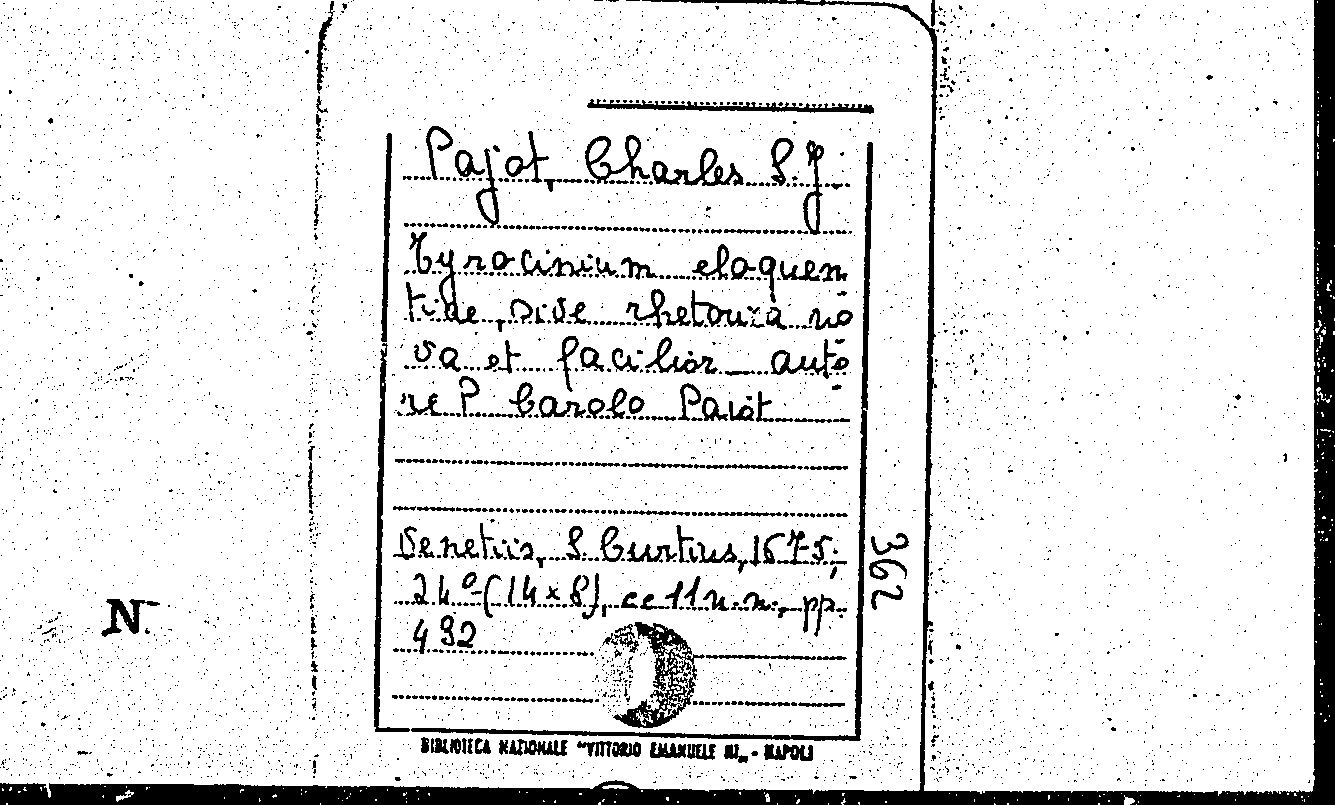 Pajot, Charles S.J.
Tyrocinium eloquen
tiae, sive rhetorica no
va et facilior _ auto
re P Carolo Paiot
Venetiis, S. Curtius, 1675;
24º (14x8), cc 11 n.n., pp.
492
362
N.
BIBLIOTECA NAZIONALE "VITTORIO EMANUELE III„ - NAPOLI